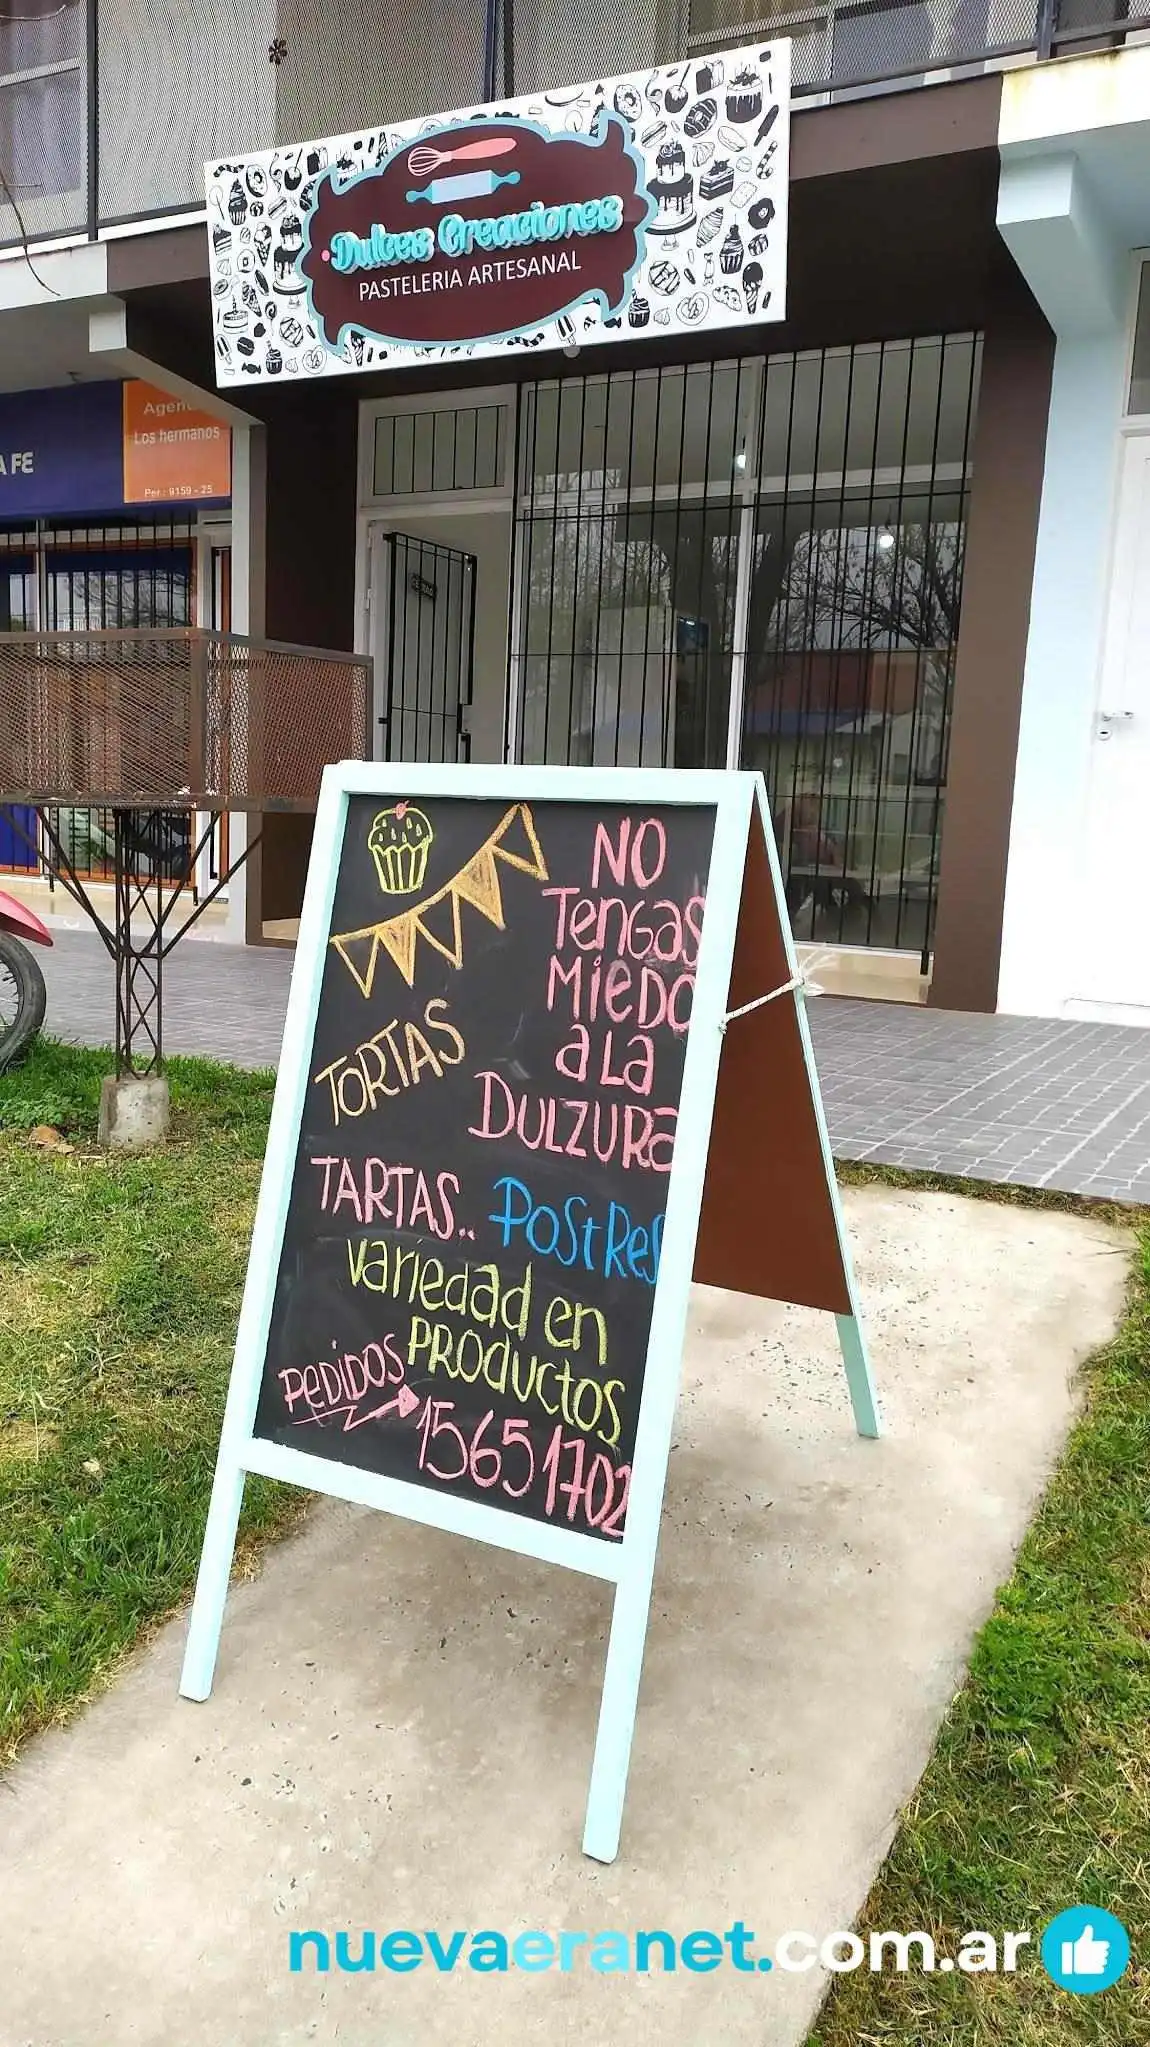 Dulces Creaciones
PASTELERIA ARTESANAL
Los hermanos
Per.: 9159 - 25
A FE
NO
TenGas
MieDO
a La
DULZURa
TORTAS
TARTAS.. PoStRes
variedad en
PRODUCTOS
PeDIDOS
15651702
nuevaeranet.com.ar